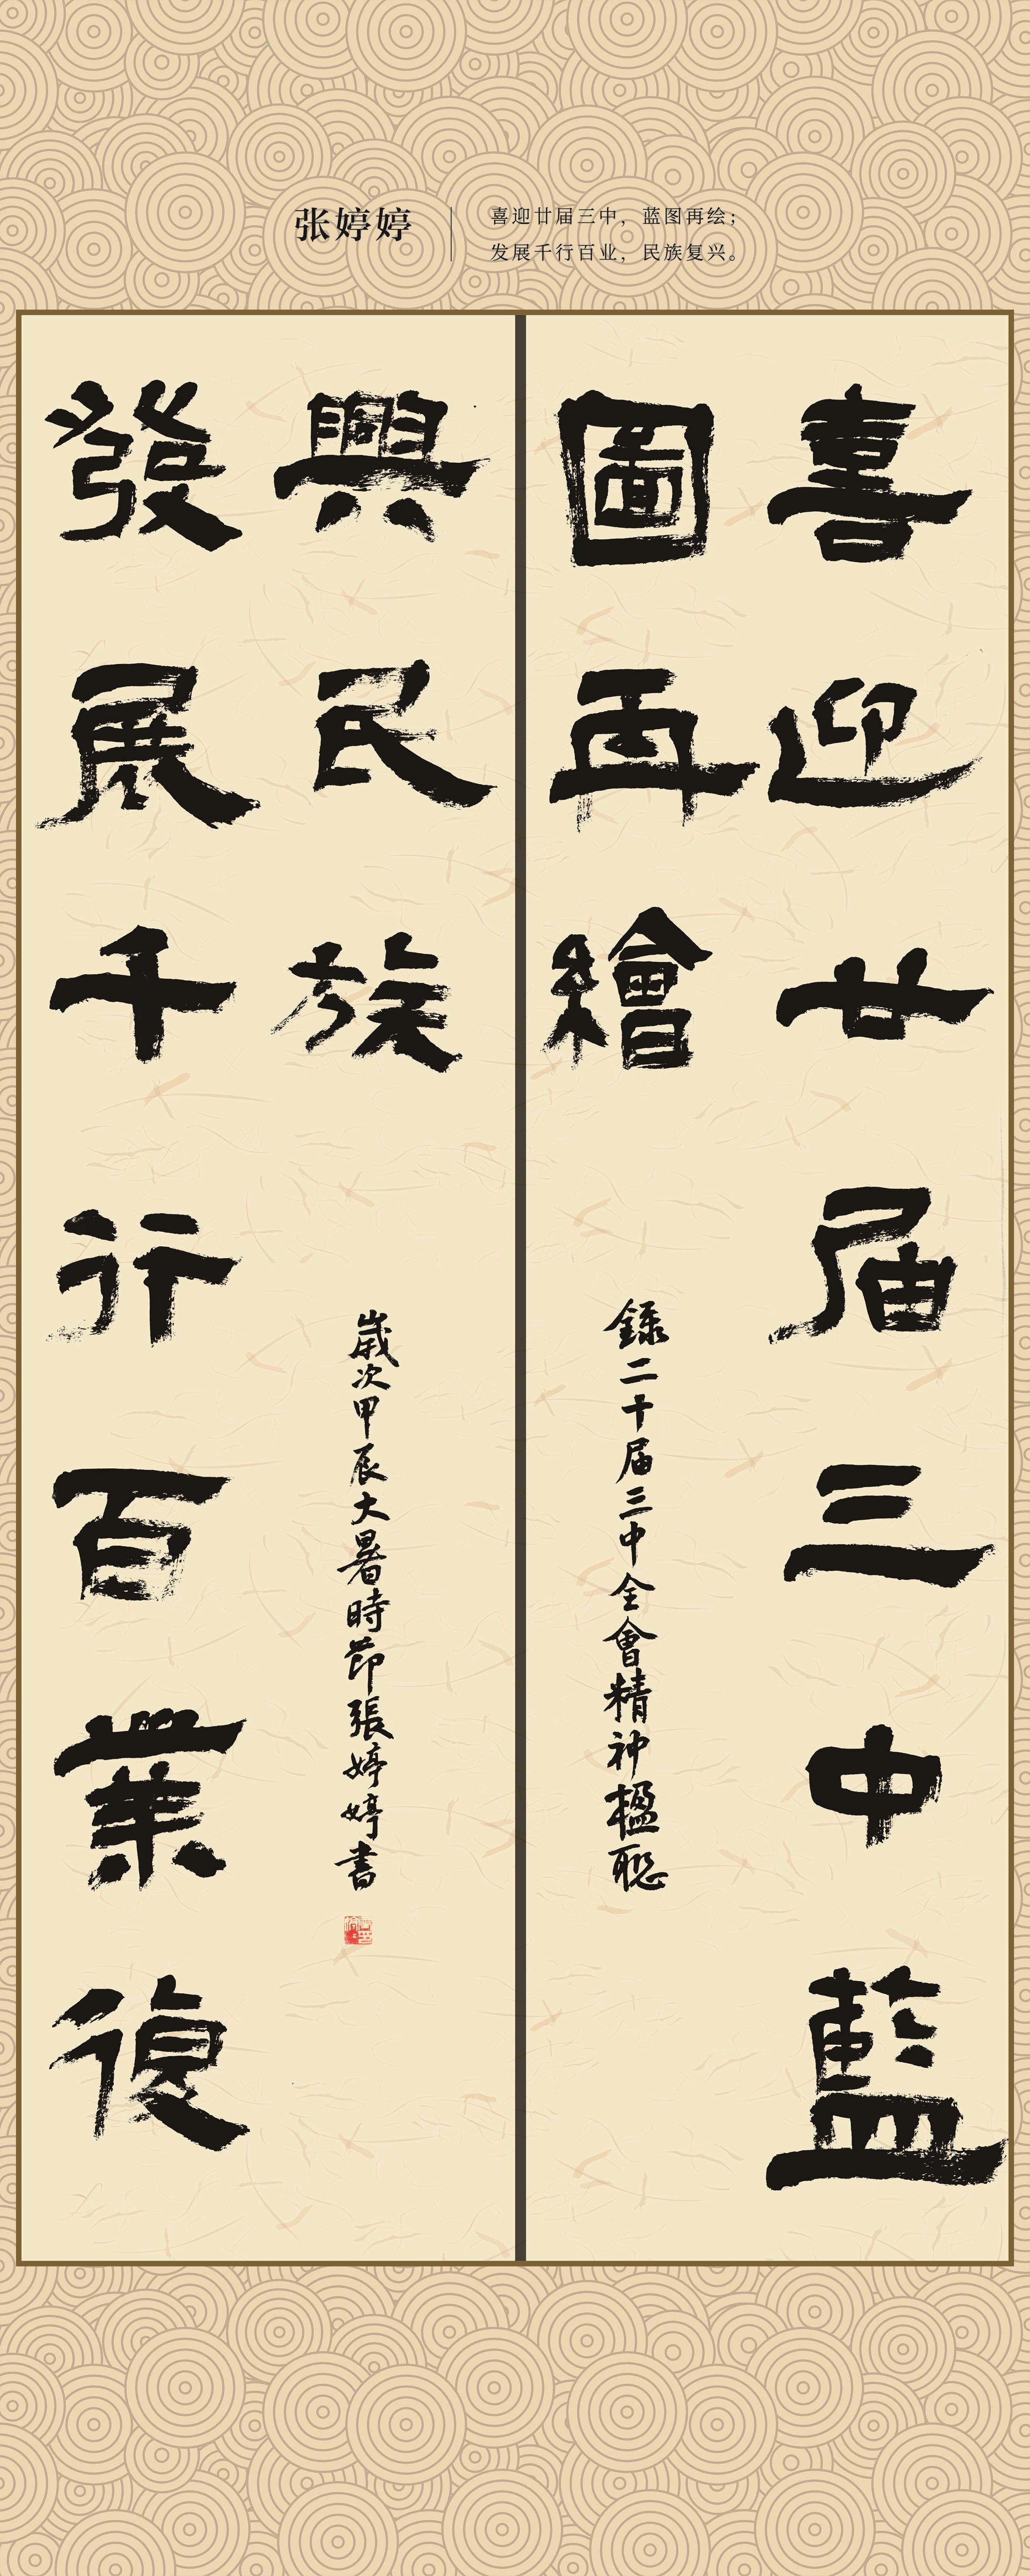 张婷婷
喜迎廿届三中，蓝图再绘；
发展千行百业，民族复兴。
喜迎廿届三中藍
圖再繪
錄二十届三中全會精神楹聯
發展千行百業復
興民族
歲次甲辰大暑時節張婷婷書